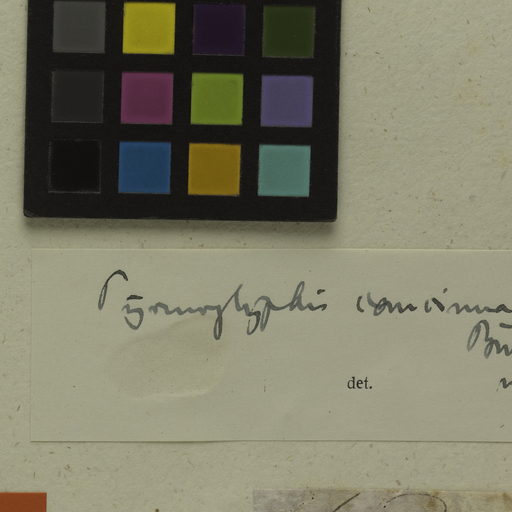 Pyrenoglyphis concinna
det.